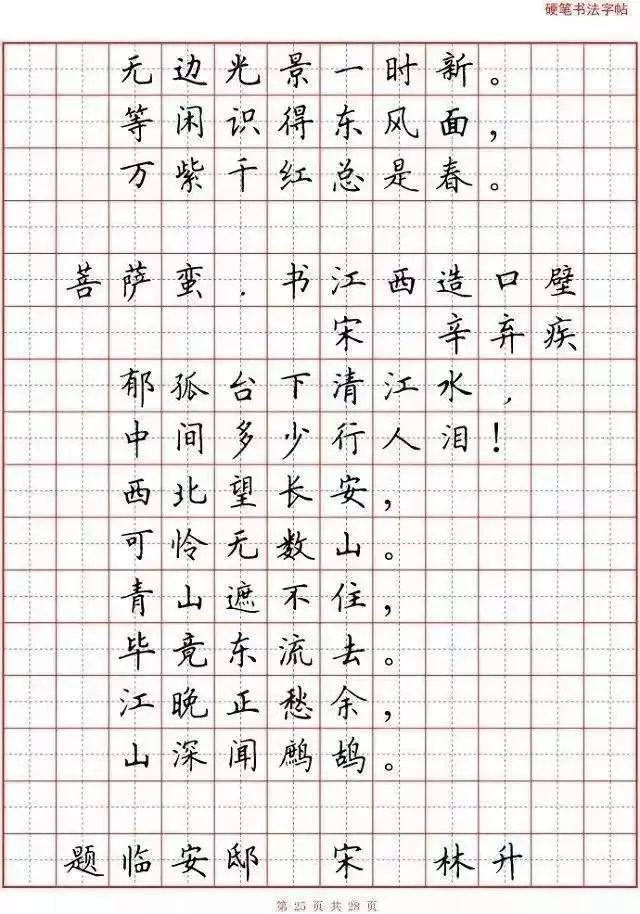 硬笔书法字帖
无边光景一时新。
等闲识得东风面，
万紫千红总是春。
菩萨蛮．书江西造口壁
宋 辛弃疾
郁孤台下清江水，
中间多少行人泪！
西北望长安，
可怜无数山。
青山遮不住，
毕竟东流去。
江晚正愁余，
山深闻鹧鸪。
题临安邸 宋 林升
第 25 页 共 28 页